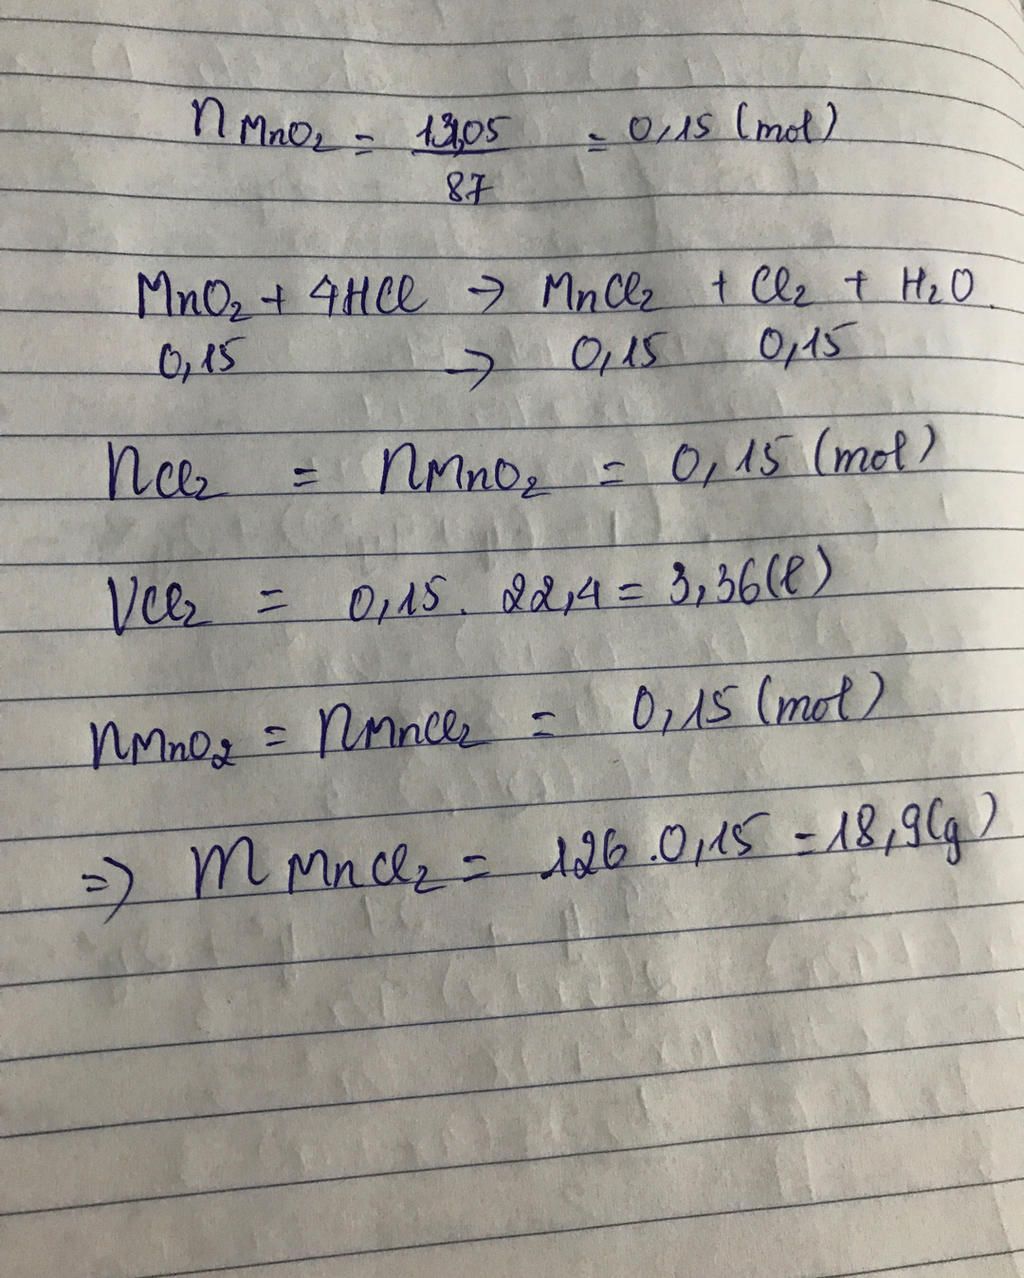 nMnO₂ = 13,05/87 = 0,15 (mol)
MnO₂ + 4HCl → MnCl₂ + Cl₂ + H₂O
0,15 → 0,15 0,15
nCl₂ = nMnO₂ = 0,15 (mol)
VCl₂ = 0,15 . 22,4 = 3,36(l)
nMnO₂ = nMnCl₂ = 0,15 (mol)
=> mMnCl₂ = 126 . 0,15 = 18,9(g)